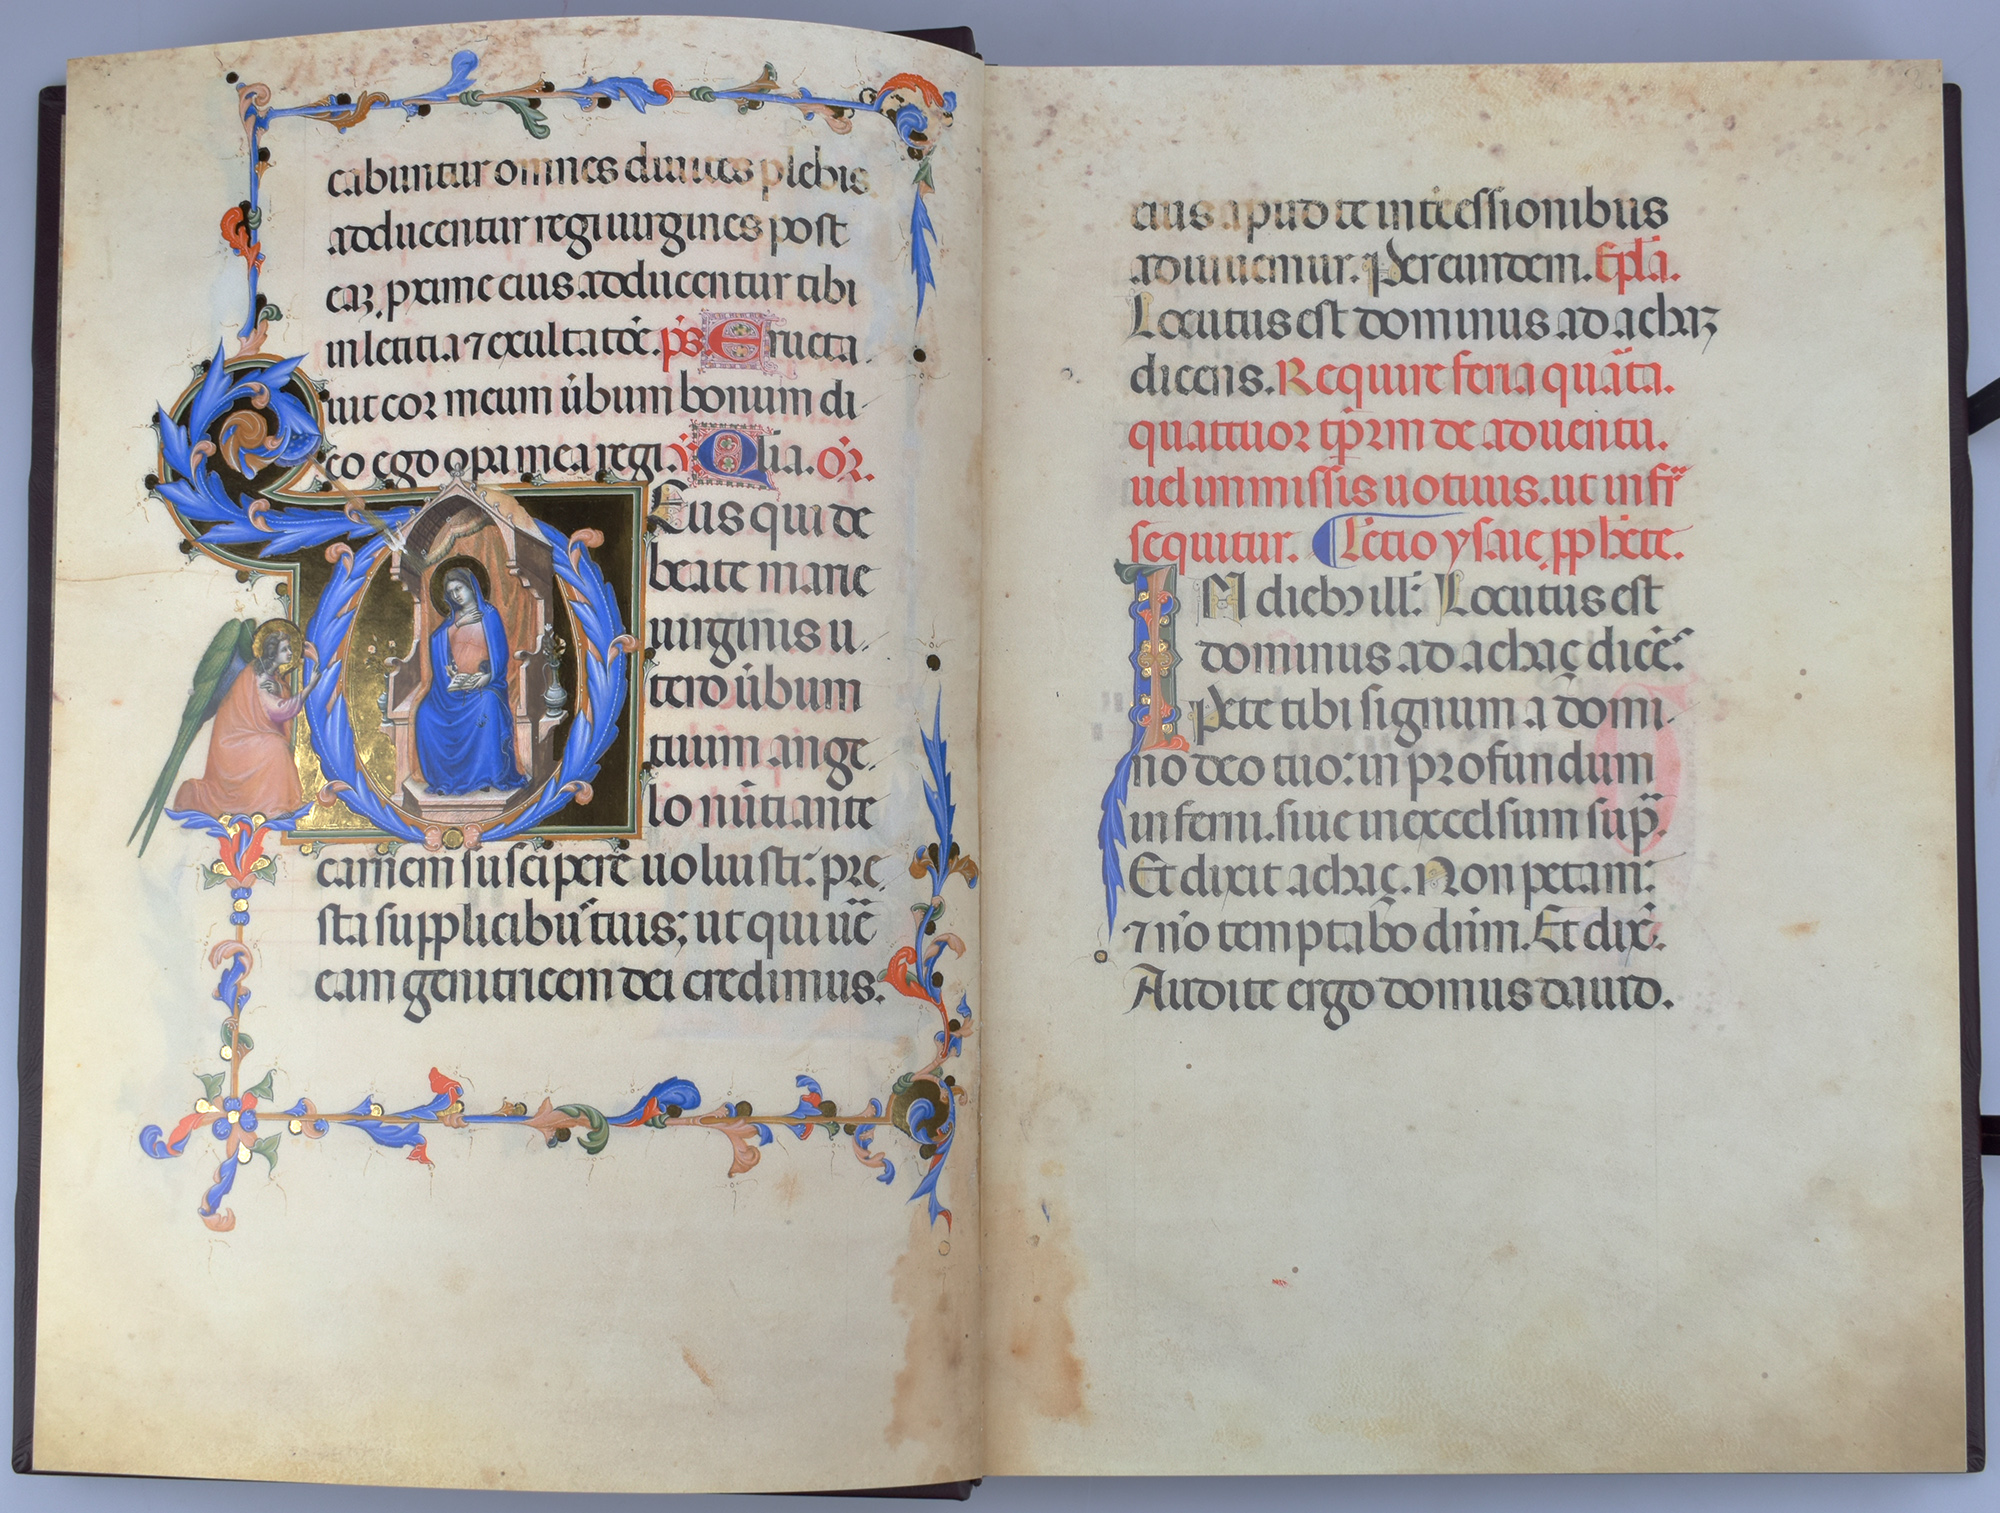 cabuntur omnes diuites plebis
adducentur regi uirgines post
eaꝝ. prime eius adducentur tibi
in letitia ⁊ exultatōe. ps̄ Eructa
uit cor meum ūbum bonum di
co ego opa mea regi. ℣ Glia. Oŕ.
Eus qui de
beate marie
uirginis u
tero ūbum
tuum ange
lo nūtiante
carnem suscipere uoluisti: pre
sta supplicibus tuis; ut qui uē
eam genitricem dei credimus.
eius apud te intcessionibus
adiuuemur. Per eundem. Epla.
Locutus est dominus ad achaz
dicens. Require feria quāta.
quattuor tp̄rm de aduentu.
uel in missis uotiuis. ut infr̄
sequitur. Lectio ysaie pphete.
IN dieb; ill: Locutus est
dominus ad achaç dicēs.
Pete tibi signum a domi
no deo tuo: in profundum
inferni. siue in excelsum sup̄.
Et dixit achaç. Non petam:
⁊ nō temptabo dn̄m. Et dix̄.
Audite ergo domus dauid.